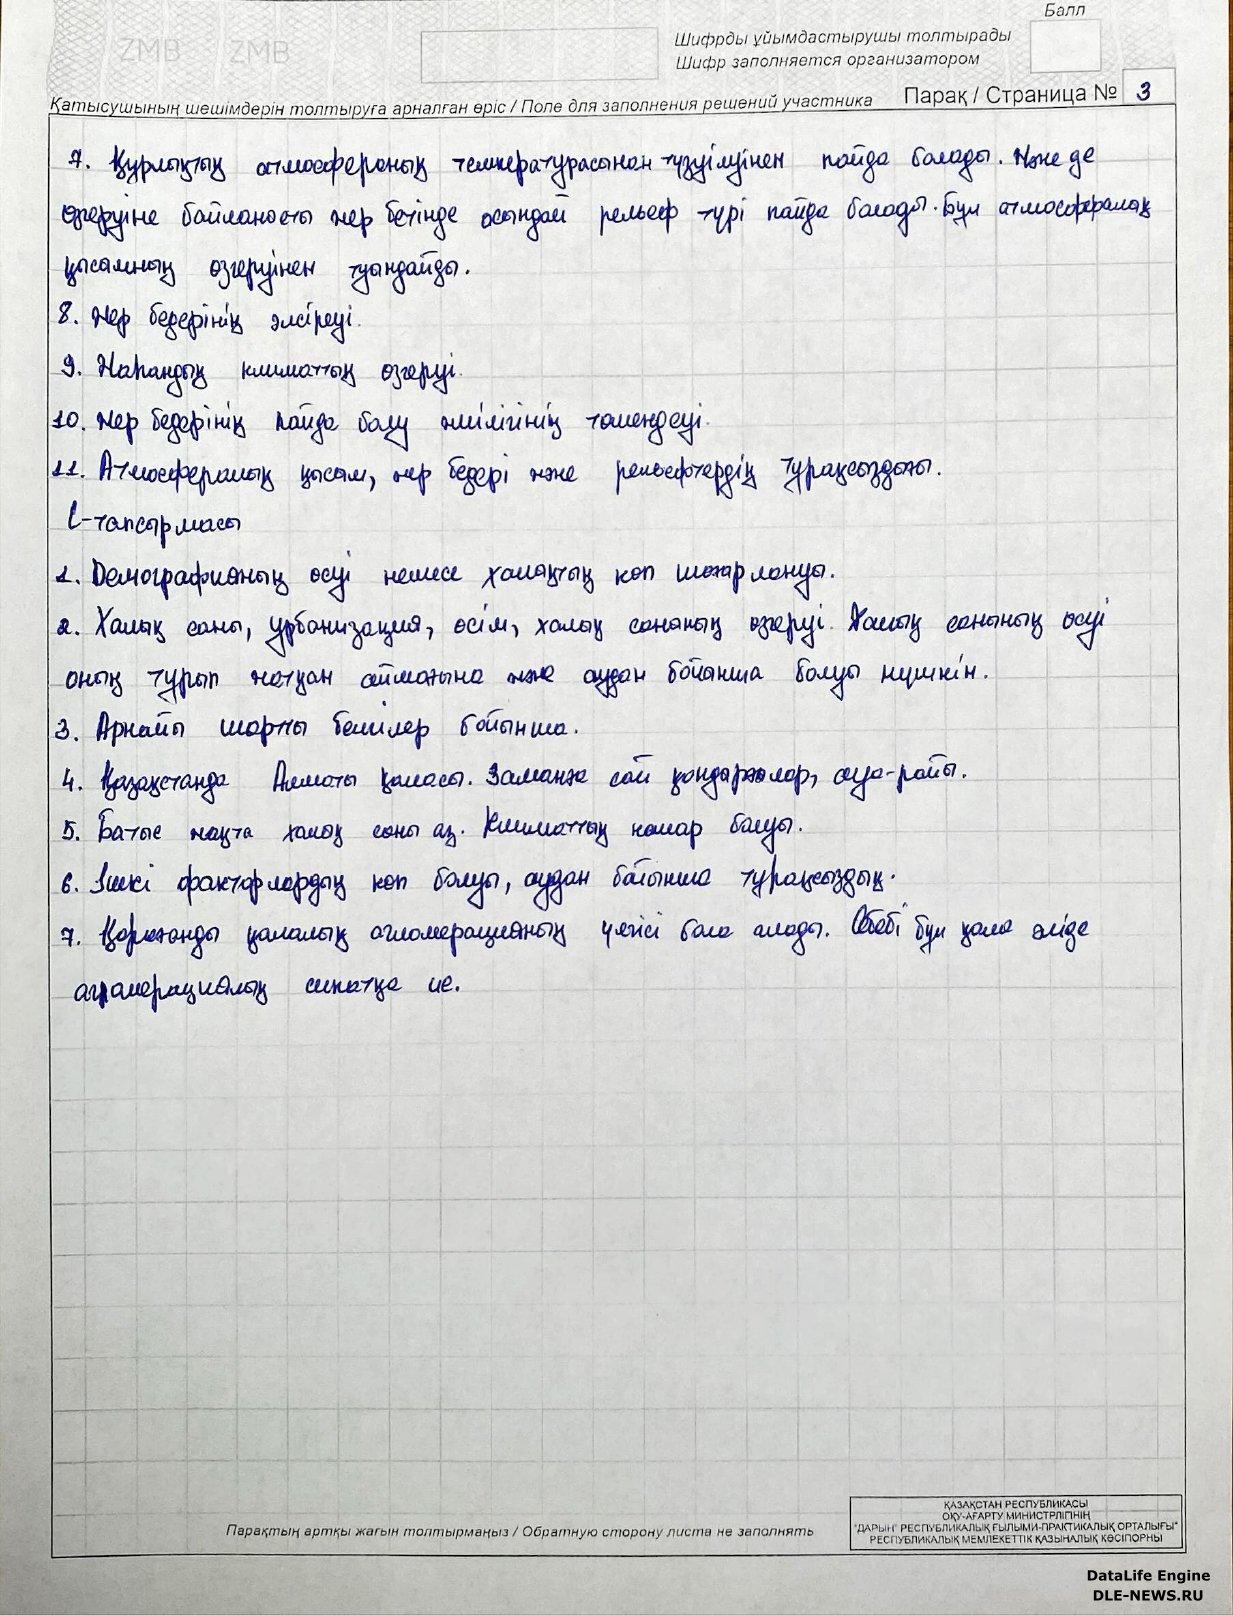 ZMB ZMB
Балл
Шифрды ұйымдастырушы толтырады
Шифр заполняется организатором
Қатысушының шешімдерін толтыруға арналған өріс / Поле для заполнения решений участника
Парақ / Страница № 3
7. Құрлықтың атмосфераның температурасынан түзуілуінен пайда болады. Және де
өзгеруіне байланысты жер бетінде осындай рельеф түрі пайда болады. Бұл атмосфералық
қысымның өзгеруінен туындайды.
8. Жер бедерінің әлсіреуі.
9. Жаһандық климаттың өзгеруі.
10. Жер бедерінің пайда болу жиілігінің төмендеуі.
11. Атмосфералық қысым, жер бедері және рельефтердің тұрақсыздығы.
С-тапсырмасы
1. Демографияның өсуі немесе халықтың көп шоғырлануы.
2. Халық саны, урбанизация, өсім, халық санының өзгеруі. Халық санының өсуі
оның тұрып жатқан аймағына және аудан бойынша болуы мүмкін.
3. Арнайы шартты белгілер бойынша.
4. Қазақстанда Алматы қаласы. Заманға сай қондырғылар, ауа-райы.
5. Батыс жақта халық саны аз. Климаттың нашар болуы.
6. Ішкі факторлардың көп болуы, аудан бойынша тұрақсыздық.
7. Қарағанды қалалық агломерацияның үлгісі бола алады. Себебі бұл қала әлі де
агломерациялық сипатқа ие.
Парақтың артқы жағын толтырмаңыз / Обратную сторону листа не заполнять
ҚАЗАҚСТАН РЕСПУБЛИКАСЫ
ОҚУ-АҒАРТУ МИНИСТРЛІГІНІҢ
"ДАРЫН" РЕСПУБЛИКАЛЫҚ ҒЫЛЫМИ-ПРАКТИКАЛЫҚ ОРТАЛЫҒЫ"
РЕСПУБЛИКАЛЫҚ МЕМЛЕКЕТТІК ҚАЗЫНАЛЫҚ КӘСІПОРНЫ
DataLife Engine
DLE-NEWS.RU